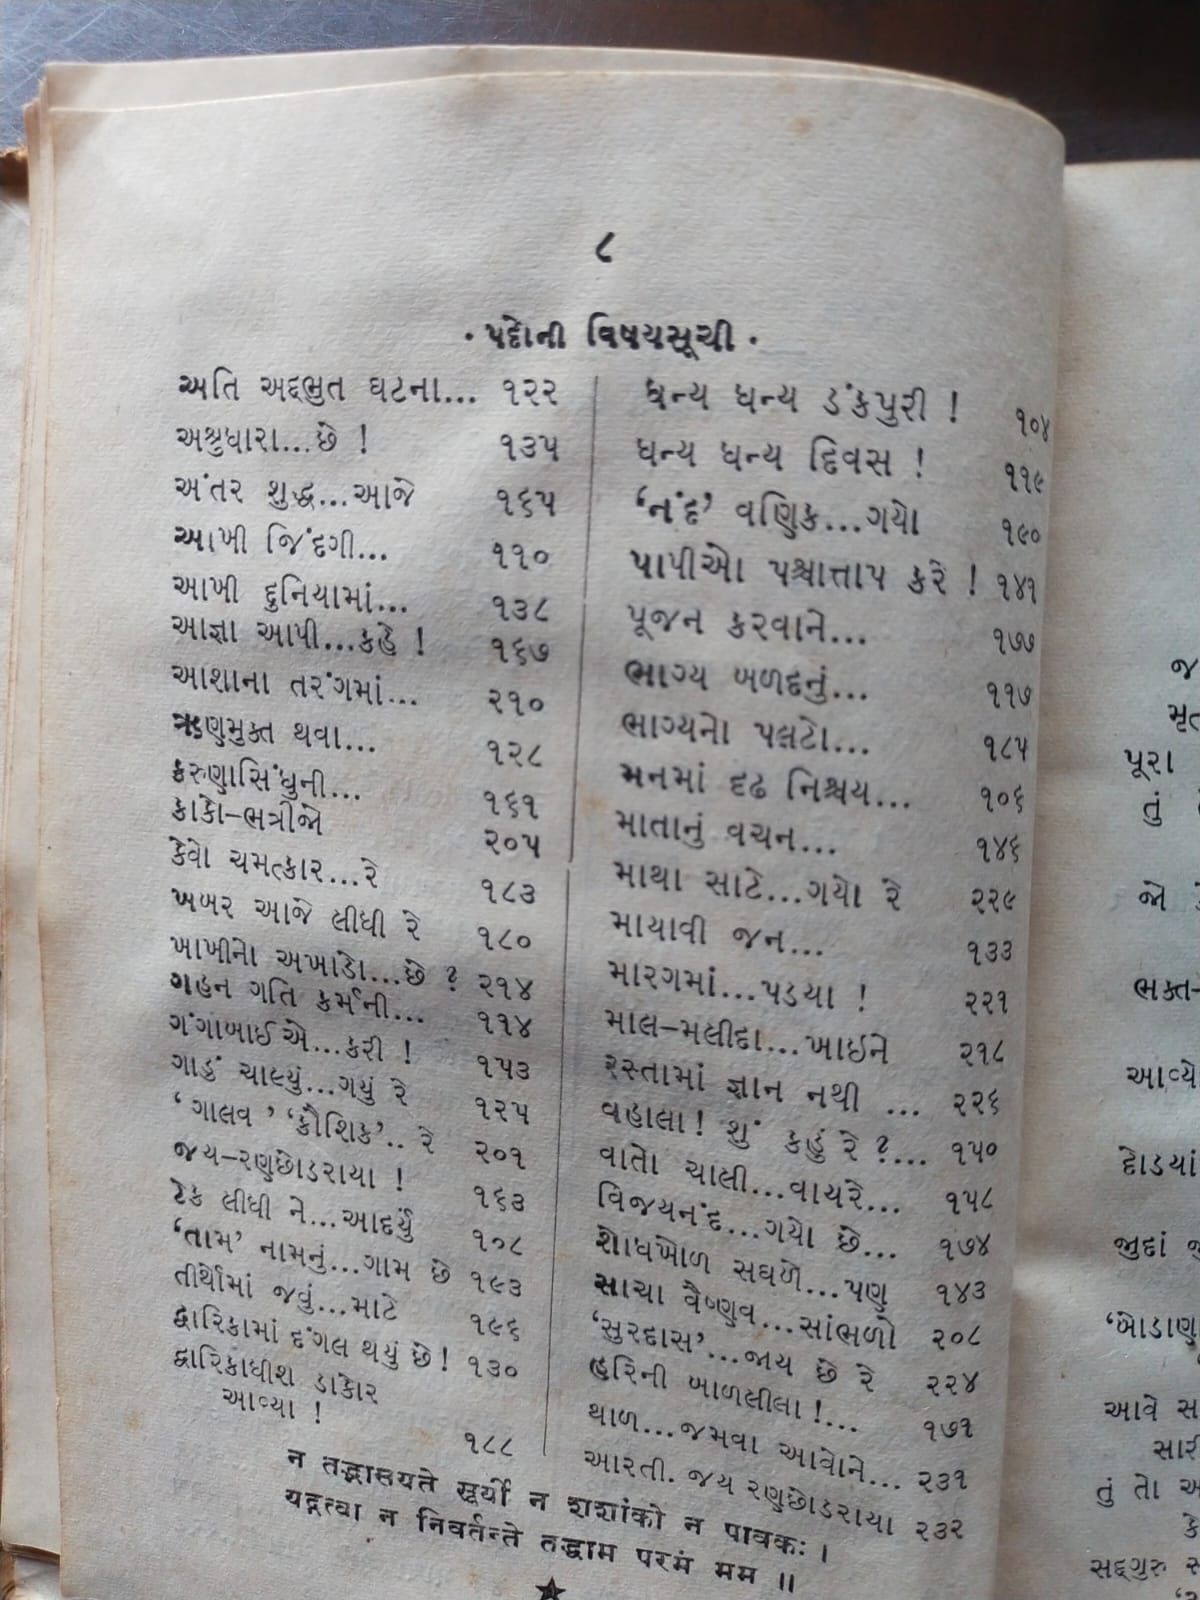 ૮
• પદોની વિષયસૂચી •
અતિ અદ્ભુત ઘટના... ૧૨૨
અશ્રુધારા...છે ! ૧૩૫
અંતર શુદ્ધ...આજે ૧૬૫
આખી જિંદગી... ૧૧૦
આખી દુનિયામાં... ૧૩૮
આજ્ઞા આપી...કહે ! ૧૬૭
આશાના તરંગમાં... ૨૧૦
ઋણમુક્ત થવા... ૧૨૮
કરુણાસિંધુની... ૧૬૧
કાકો-ભત્રીજો ૨૦૫
કેવો ચમત્કાર...રે ૧૮૩
ખબર આજે લીધી રે ૧૮૦
ખાખીનો અખાડો...છે ? ૨૧૪
ગહન ગતિ કર્મની... ૧૧૪
ગંગાબાઈએ...કરી ! ૧૫૩
ગાડું ચાલ્યું...ગયું રે ૧૨૫
‘ગાલવ’ ‘કૌશિક’.. રે ૨૦૧
જય-રણછોડરાયા ! ૧૬૩
ટેક લીધી ને...આદર્યું ૧૦૮
‘તામ’ નામનું...ગામ છે ૧૯૩
તીર્થોમાં જવું...માટે ૧૯૬
દ્વારિકામાં દંગલ થયું છે! ૧૩૦
દ્વારિકાધીશ ડાકોર
આવ્યા ! ૧૮૮
ધન્ય ધન્ય ડંકપુરી ! ૧૦૪
ધન્ય ધન્ય દિવસ ! ૧૧૯
‘નંદ’ વણિક...ગયો ૧૯૦
પાપીઓ પશ્ચાત્તાપ કરે ! ૧૪૧
પૂજન કરવાને... ૧૭૭
ભાગ્ય બળદનું... ૧૧૭
ભાગ્યનો પલટો... ૧૮૫
મનમાં દૃઢ નિશ્ચય... ૧૦૬
માતાનું વચન... ૧૪૬
માથા સાટે...ગયો રે ૨૨૯
માયાવી જન... ૧૩૩
મારગમાં...પડયા ! ૨૨૧
માલ-મલીદા...ખાઇને ૨૧૮
રસ્તામાં જ્ઞાન નથી ... ૨૨૬
વહાલા! શું કહું રે ?... ૧૫૦
વાતો ચાલી...વાયરે... ૧૫૮
વિજયનંદ...ગયો છે... ૧૭૪
શોધખોળ સઘળે...પણ ૧૪૩
સાચા વૈષ્ણવ...સાંભળો ૨૦૮
‘સુરદાસ’...જાય છે રે ૨૨૪
હરિની બાળલીલા !... ૧૭૧
થાળ...જમવા આવોને... ૨૩૧
આરતી. જય રણછોડરાયા ૨૩૨
न तद्भासयते सूर्यो न शशांको न पावकः ।
यद्गत्वा न निवर्तन्ते तद्धाम परमं मम ॥
જ
મૃત
પૂરા
તું
જો
ભક્ત-
આવ્યે
દોડયાં
જુદાં
‘બોડાણ
આવે સ
સારી
તું તો
કે
સદ્ગુરુ